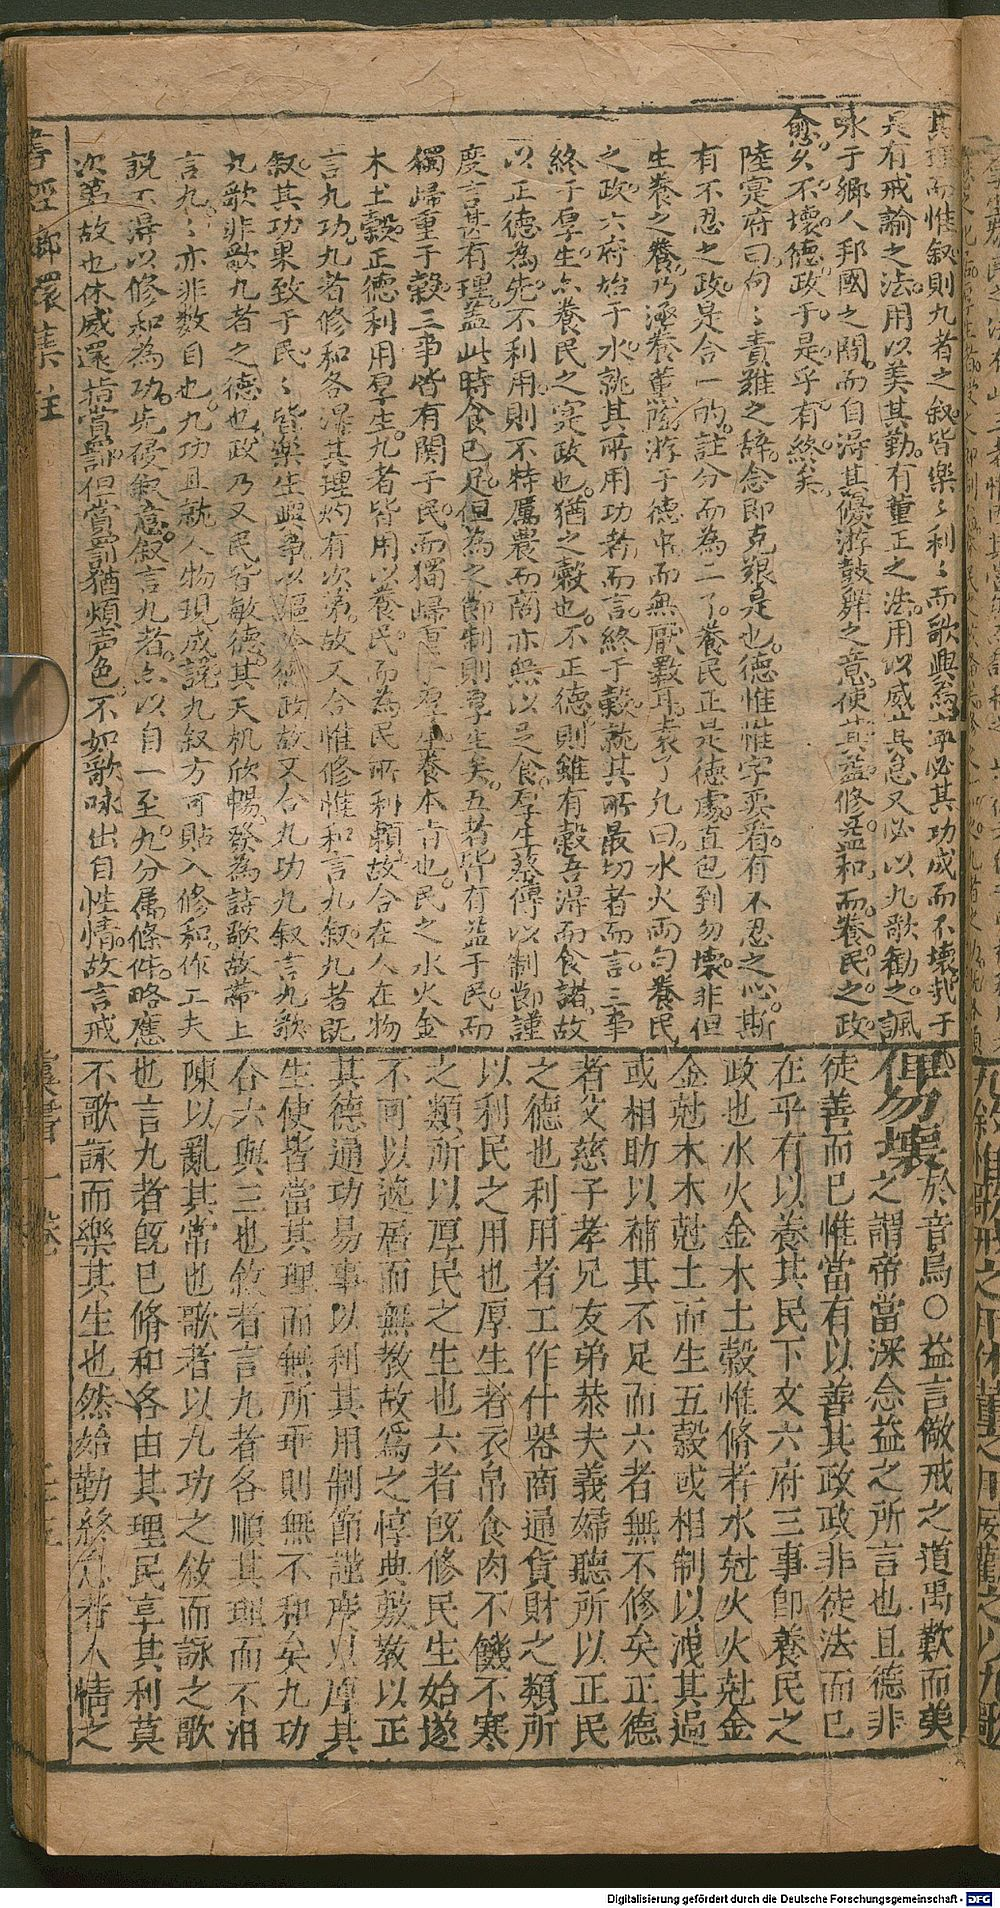 其理而惟叙則九者之叙皆樂〻利〻而歌興焉寧必其功成而不壞哉于
是有戒諭之法用以美其勤有董正之法用以威其怠又必以九歌勸之諷
永于鄉人邦國之間而自得其優游鼓舞之意使其益修益和而養民之政
愈久不壞德政于是乎有終矣
陸寔府曰句〻責難之辞念即克艱是也德惟惟字要看有不忍之心斯
有不忍之政是合一的註分而為二了養民正是德處直包到勿壞非但
生養之養乃涵養薰陶游于德中而無厭斁耳袁了凡曰水火兩句養民
之政六府始于水就其所用功者而言終于穀就其所最切者而言三事
終于厚生㸃養民之寔政也猶之穀也不正德則雖有穀吾得而食諸故
以正德為先不利用則不特厲農而商亦無以足食厚生蔡傳以制節謹
度言甚有理盖此時食已足但為之節制則厚生矣五者皆有益于民而
獨歸重于穀三事皆有関于民而獨歸重于厚生養本㫖也民之水火金
木土穀正德利用厚生九者皆用以養民而為民所利賴故合在人在物
言九功九者修和各得其理灼有次第故又合惟修惟和言九叙九者既
叙其功果致于民〻皆樂生興事以謳吟德政故又合九功九叙言九歌
九歌非歌九者之德也政乃又民皆敏德其天机欣暢發為詩歌故帶上
言九〻亦非数目也九功且就人物現成說九叙方可貼入修和作工夫
說不得以修和為功先侵叙意叙言九者㸃以自一至九分属條件略應
次第故也休威還指賞罰但賞罰猶煩声色不如歌咏出自性情故言戒
俾勿壞於音烏○益言儆戒之道禹歎而美
之謂帝當深念益之所言也且德非
徒善而已惟當有以善其政政非徒法而已
在乎有以養其民下文六府三事即養民之
政也水火金木土穀惟脩者水尅火火尅金
金尅木木尅土而生五穀或相制以洩其過
或相助以補其不足而六者無不修矣正德
者父慈子孝兄友弟恭夫義婦聽所以正民
之德也利用者工作什器商通貨財之類所
以利民之用也厚生者衣帛食肉不饑不寒
之類所以厚民之生也六者既修民生始遂
不可以逸居而無教故爲之惇典敷教以正
其德通功易事以利其用制節謹度以厚其
生使皆當其理而無所乖則無不和矣九功
合六與三也敘者言九者各順其理而不汨
陳以亂其常也歌者以九功之敘而詠之歌
也言九者既已脩和各由其理民享其利莫
不歌詠而樂其生也然始勤終怠者人情之
書經
集註
虞書一卷
Digitalisierung gefördert durch die Deutsche Forschungsgemeinschaft - DFG